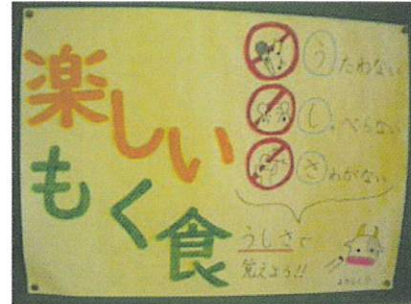 楽しい
もく食
うたわない
しゃべらない
さわがない
うしさで
覚えよう!!